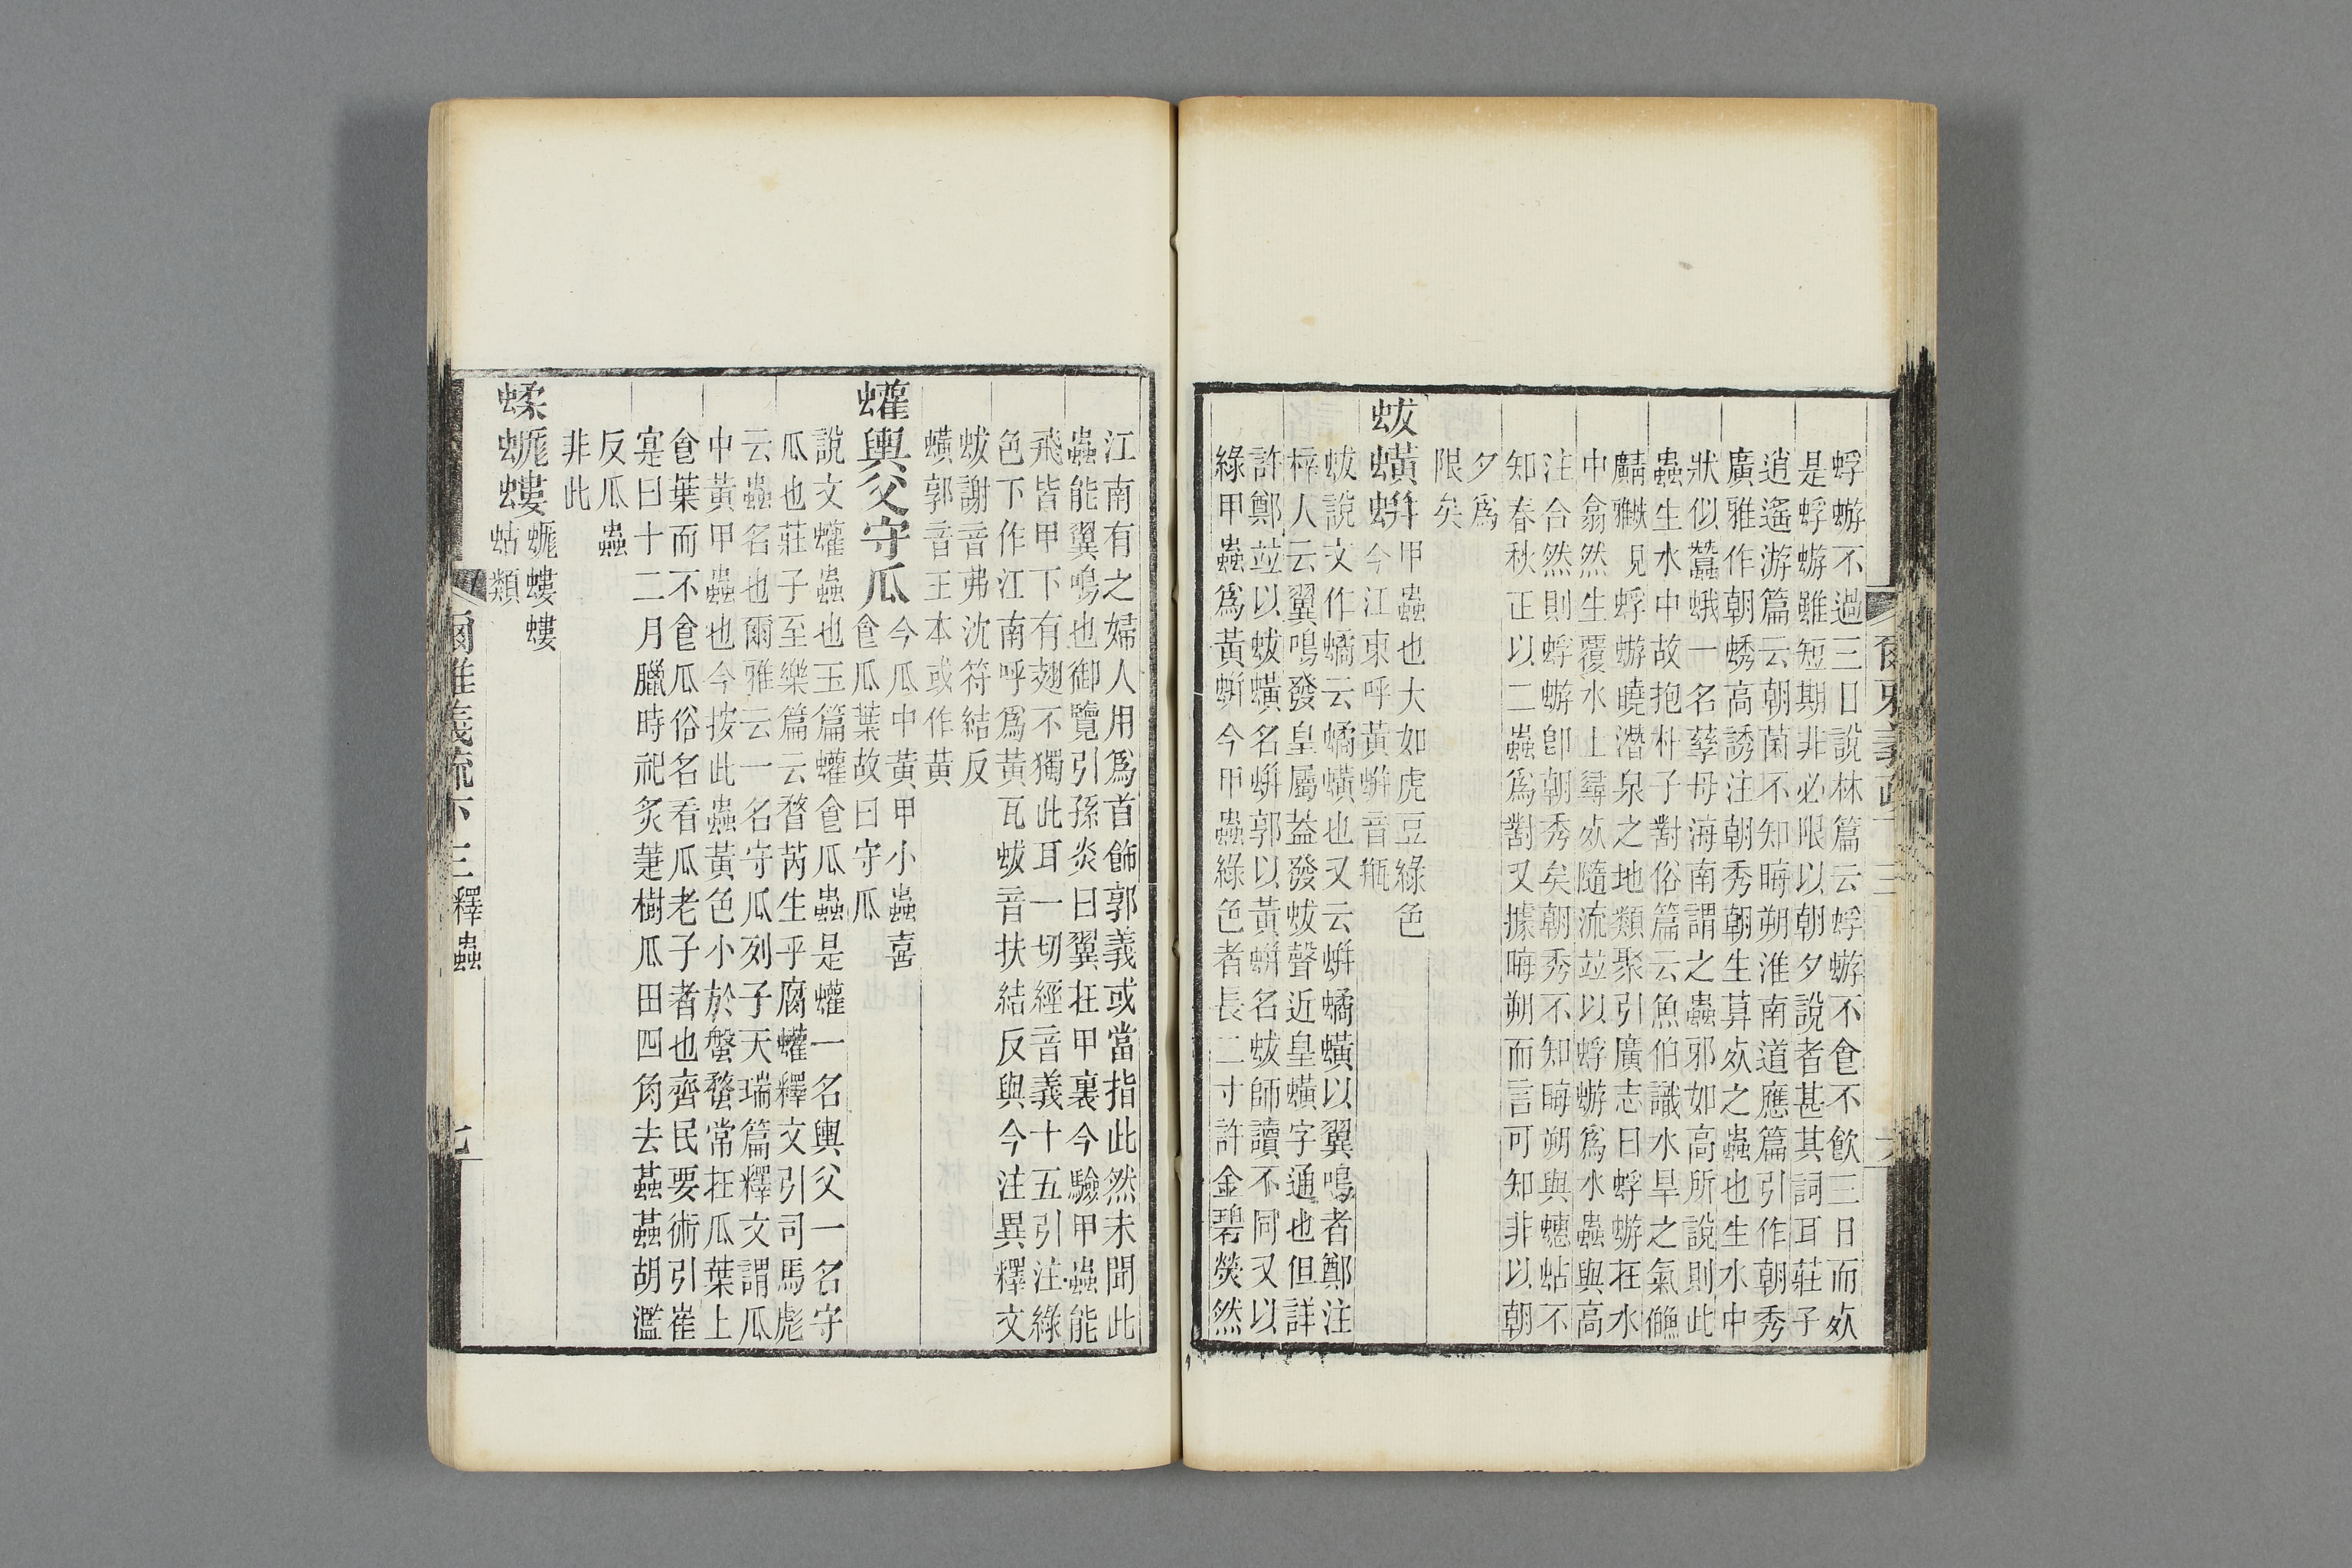 爾雅義疏
蜉蝣不過三日說林篇云蜉蝣不食不飲三日而死
是蜉蝣雖短期非必限以朝夕說者甚其詞耳莊子
逍遙游篇云朝菌不知晦朔淮南道應篇引作朝秀
廣雅作朝蜏高誘注朝秀朝生算死之蟲也生水中
狀似蠶蛾一名孳母海南謂之蟲邪如高所說則此
蟲生水中故抱朴子對俗篇云魚伯識水旱之氣
見蜉蝣曉潛泉之地類聚引廣志曰蜉蝣在水
中翕然生覆水上尋死隨流竝以蜉蝣爲水蟲與高
注合然則蜉蝣卽朝秀矣朝秀不知晦朔與蟪蛄不
知春秋正以二蟲爲對又據晦朔而言可知非以朝
夕爲
限矣
蛂蟥蛢
甲蟲也大如虎豆綠色
今江東呼黃蛢音瓶
蛂說文作蟠云蟠蟥也又云蛢蟠蟥以翼鳴者鄭注
梓人云翼鳴發皇屬葢發蛂聲近皇蟥字通也但詳
許鄭竝以蛂蟥名蛢郭以黃蛢名蛂師讀不同又以
綠甲蟲爲黃蛢今甲蟲綠色者長二寸許金碧熒然
江南有之婦人用爲首飾郭義或當指此然未聞此
蟲能翼鳴也御覽引孫炎曰翼在甲裏今驗甲蟲能
飛皆甲下有翅不獨此耳一切經音義十五引注綠
色下作江南呼爲黃瓦蛂音扶結反與今注異釋文
蛂謝音弗沈符結反
蟥郭音王本或作黃
蠸輿父守瓜
今瓜中黃甲小蟲喜
食瓜葉故曰守瓜
說文蠸蟲也玉篇蠸食瓜蟲是蠸一名輿父一名守
瓜也莊子至樂篇云瞀芮生乎腐蠸釋文引司馬彪
云蟲名也爾雅云一名守瓜列子天瑞篇釋文謂瓜
中黃甲蟲也今按此蟲黃色小於螌蝥常在瓜葉上
食葉而不食瓜俗名看瓜老子者也齊民要術引崔
寔曰十二月臘時祀炙萐樹瓜田四角去蟲蟲胡濫
反瓜蟲
非此
蝚蚅螻
蚅螻螻
蛄類
爾雅義疏下三 釋蟲 七